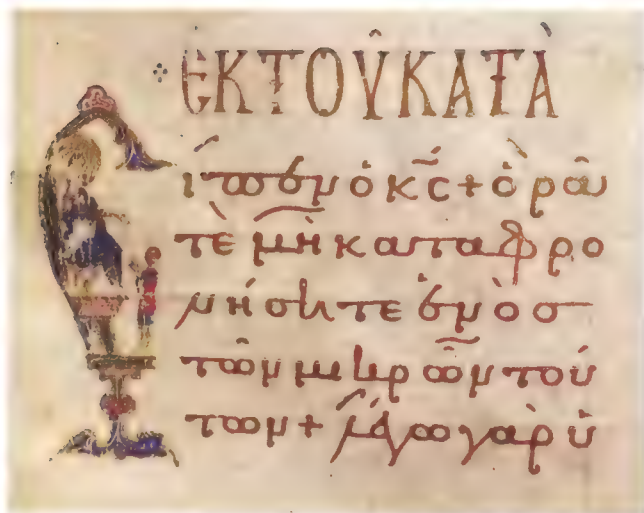 ἘΚ ΤΟΥ͂ ΚΑΤᾺ
Εἶπεν ὁ κς + ὁρᾶ
τὲ μὴ καταφρο
νήσητε ἑνὸσ
τῶν μικρῶν τού
των + λέγω γὰρ ὑ